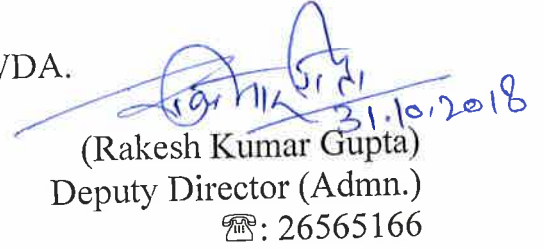 /DA.
31.10.2018
(Rakesh Kumar Gupta)
Deputy Director (Admn.)
☎: 26565166